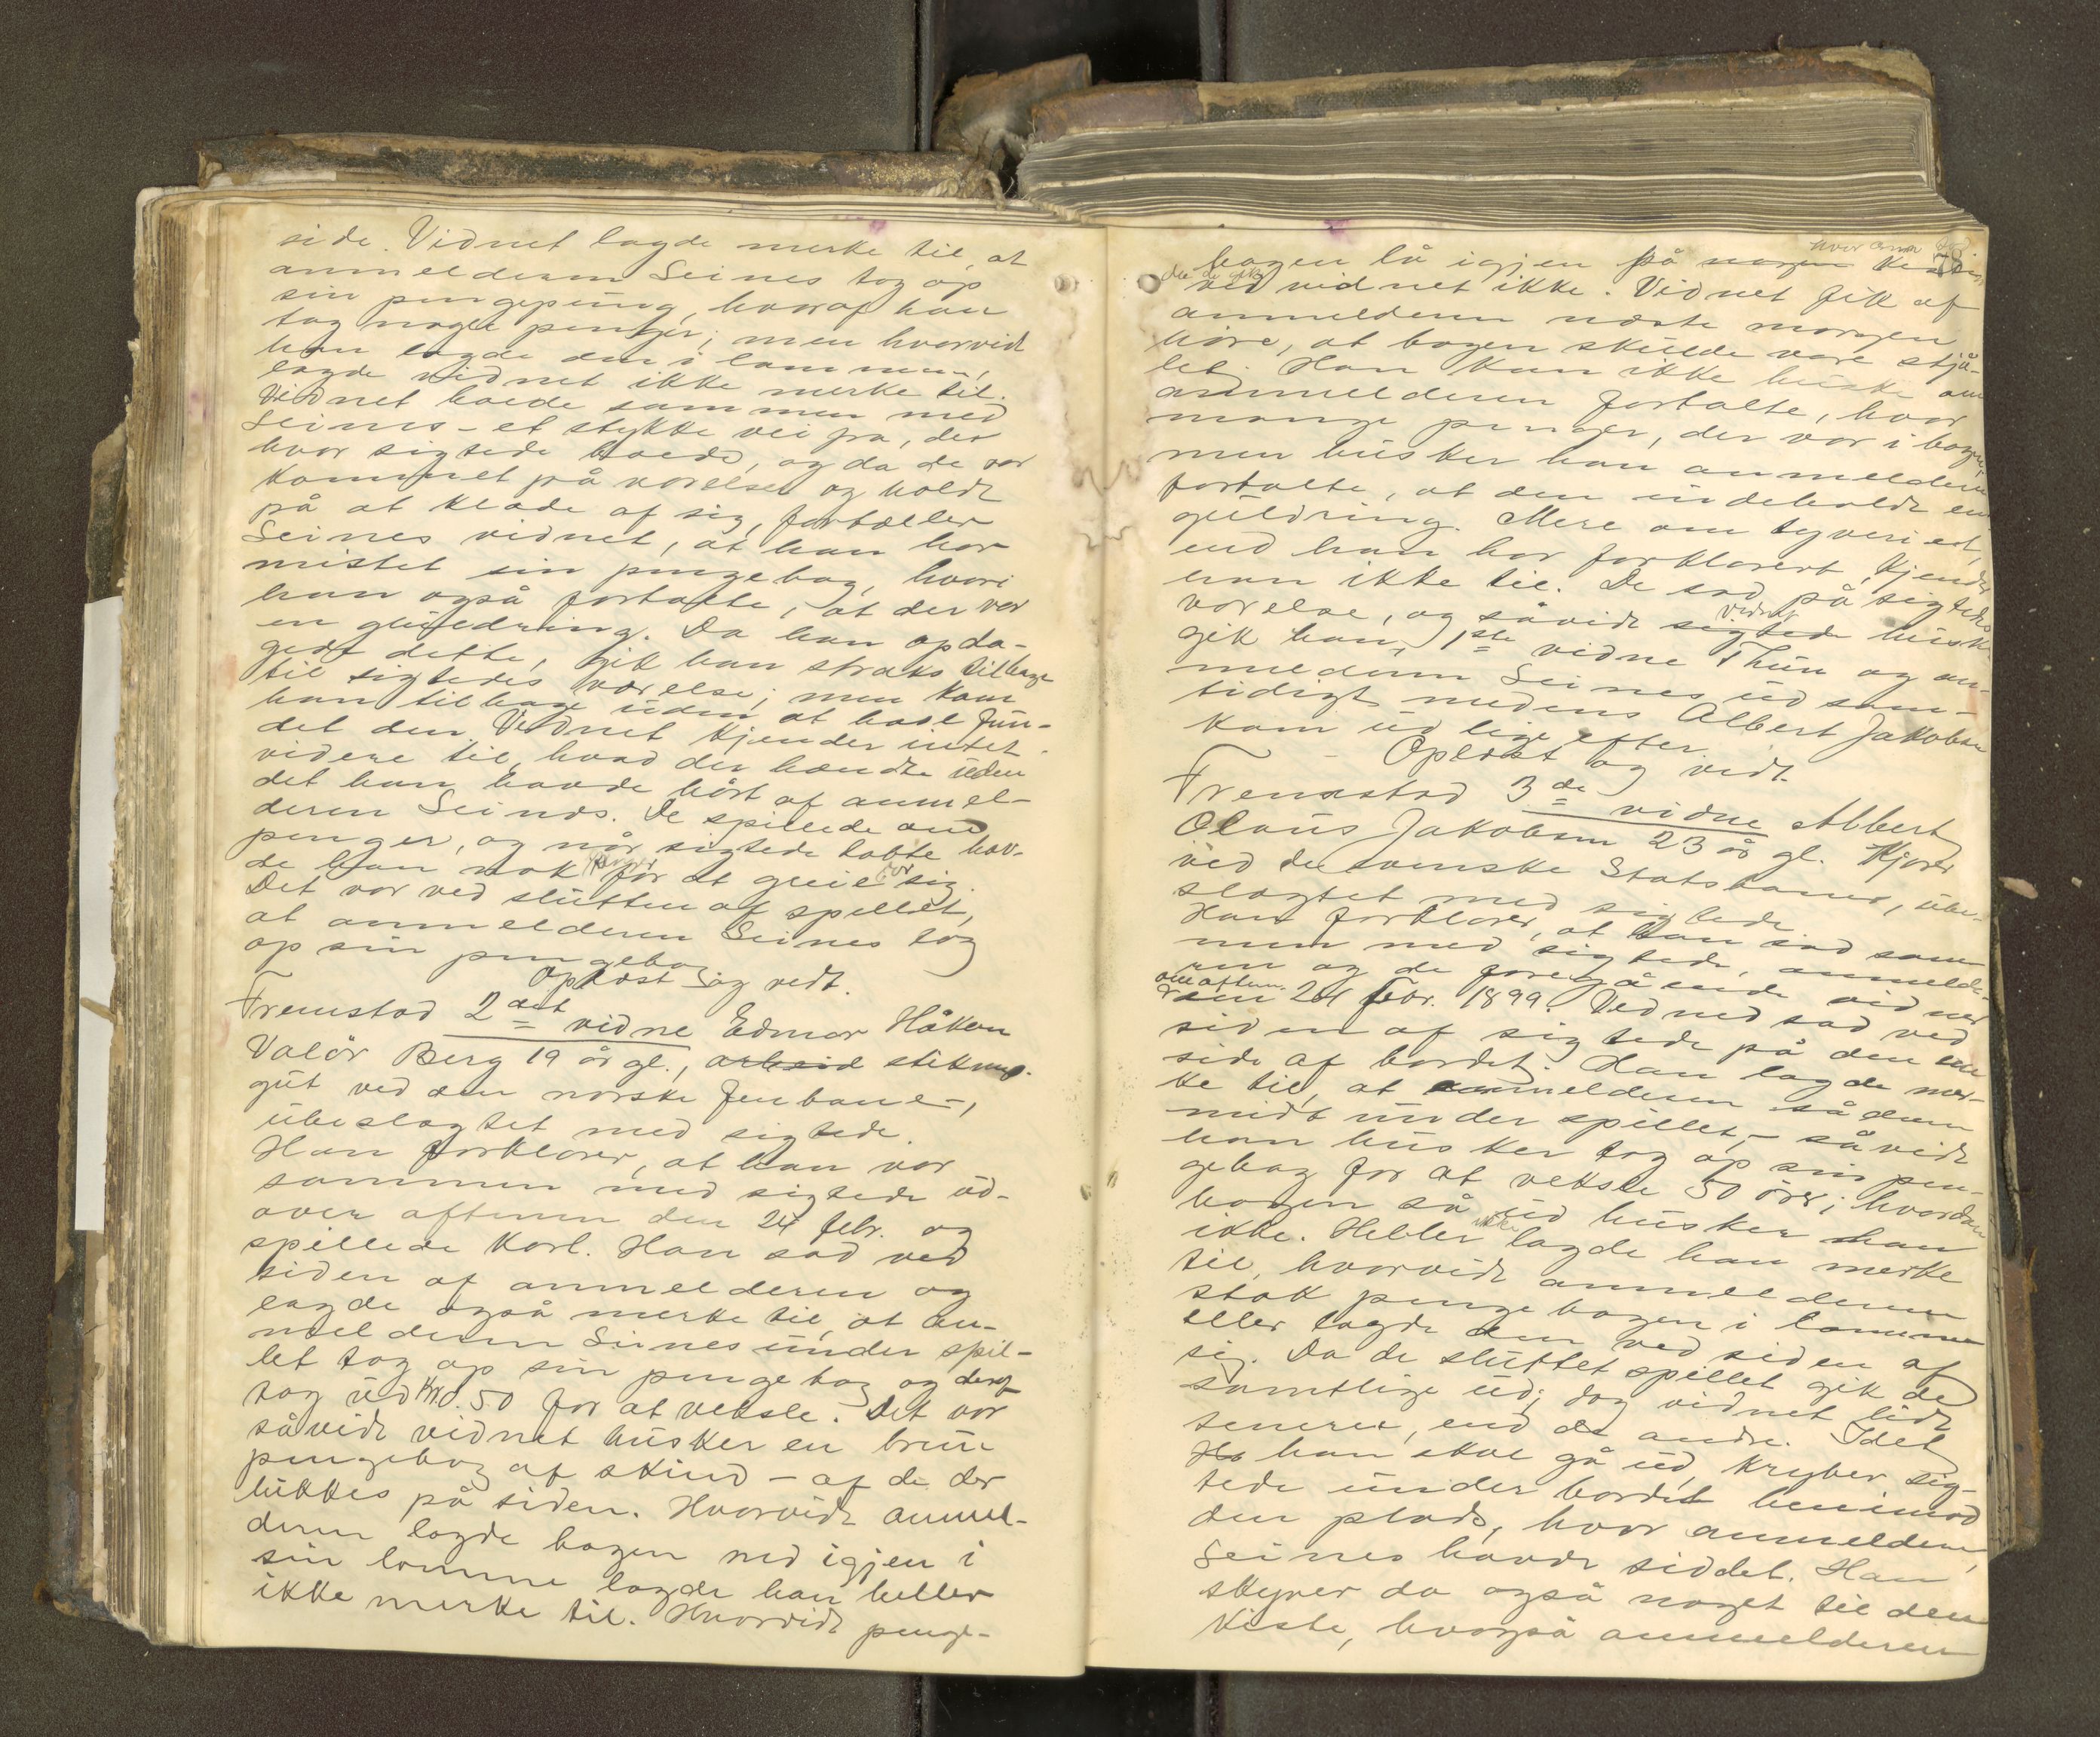 side. Vidnet lagde merke til, at
anmelderen Seines tog op
sin pengepung, hvoraf han
tog nogle penger; men hvorvidt
han lagde den i lommen,
lagde vidnet ikke merke til.
Vidnet boede sammen med
Seines - et stykke vei fra, der
hvor sigtede boede, og da de var
kommet på værelset og holdt
på at klæde af sig, fortæller
Seines vidnet, at han har
mistet sin pengebog, hvori
han også fortalte, at der var
en guldring. Da han opda-
gedt dette, gik han straks tilbage
til sigtedes værelse; men kom
han tilbage uden at have fun-
det den. Vidnet kjender intet
videre til, hvad der hændte uden
det han havde hørt af anmel-
deren Seines. De spillede om
penger, og når sigtede tabte hav-
de han nok penger for at greie for sig.
Det var ved slutten af spillet,
at anmelderen Seines tog
op sin pengebog
Oplæst og vedt.
Fremstod 2det vidne Edmar Håkon
Valör Berg 19 år gl., arbeid stiknings-
gut ved den norske Jenbane,
ubeslægtet med sigtede.
Han forklarer, at han var
sammen med sigtede ud-
over aftenen den 24 febr. og
spillede kort. Han sad ved
siden af anmelderen og
lagde også merke til, at an-
melderen Seines under spil-
let tog op sin pengebog og deraf
tog ud Kr 0.50 for at veksle. Det var
såvidt vidnet husker en brun
pengebog af skind - af de der
lukkes på siden. Hvorvidt anmel-
deren lagde bogen ned igjen i
sin lomme lagde han heller
ikke merke til. Hvorvidt penge-
hvor Anm
bogen lå igjen på nogen
da de gik
ved vidnet ikke. Vidnet fik af
anmelderen næste morgen
høre, at bogen skulde være stjå-
let. Han kan ikke huske om
anmelderen fortalte, hvor
mange penger, der var i bogen,
men husker han anmelderen
fortalte, at den indeholdt en
guldring. Mere om tyveriet,
end han har forklaret, kjender
han ikke til. De sad på sigtedes
værelse, og såvidt sigtede vidnet husker
gik han, 1ste vidne Thun og an-
melderen Seines ud sam-
tidigt medens Albert Jakobsen
kom ud lige efter.
Oplæst og vedt.
Fremstod 3de vidne Albert
Olaus Jakobsen 23 år gl. Kjører
ved de svenske Statsbaner, ube-
slægtet med sigtede
Han forklarer, at han sad sam-
men med sigtede, anmelde-
ren og de foregående vidner
om aftenen
den 24 Febr. 1899. Vidnet sad ved
siden af sigtede på den ene
side af bordet. Han lagde mer-
ke til, at anmelderen sådan
midt under spillet, - såvidt
han husker tog op sin pen-
gebog for at veksle 50 ører; hvordan
bogen så ud husker han
ikke. Heller ikke lagde han merke
til, hvorvidt anmelderen
stak pengebogen i lommen
eller lagde den ved siden af
sig. Da de sluttet spillet gik de
samtlige ud; dog vidnet lidt
senere, end de andre. Idet
Ha han skal gå ud, kryber sig-
tede under bordet henimod
den plads, hvor anmelderen,
Seines havde siddet. Han
skyver da også noget til den
kiste, hvorpå anmelderen